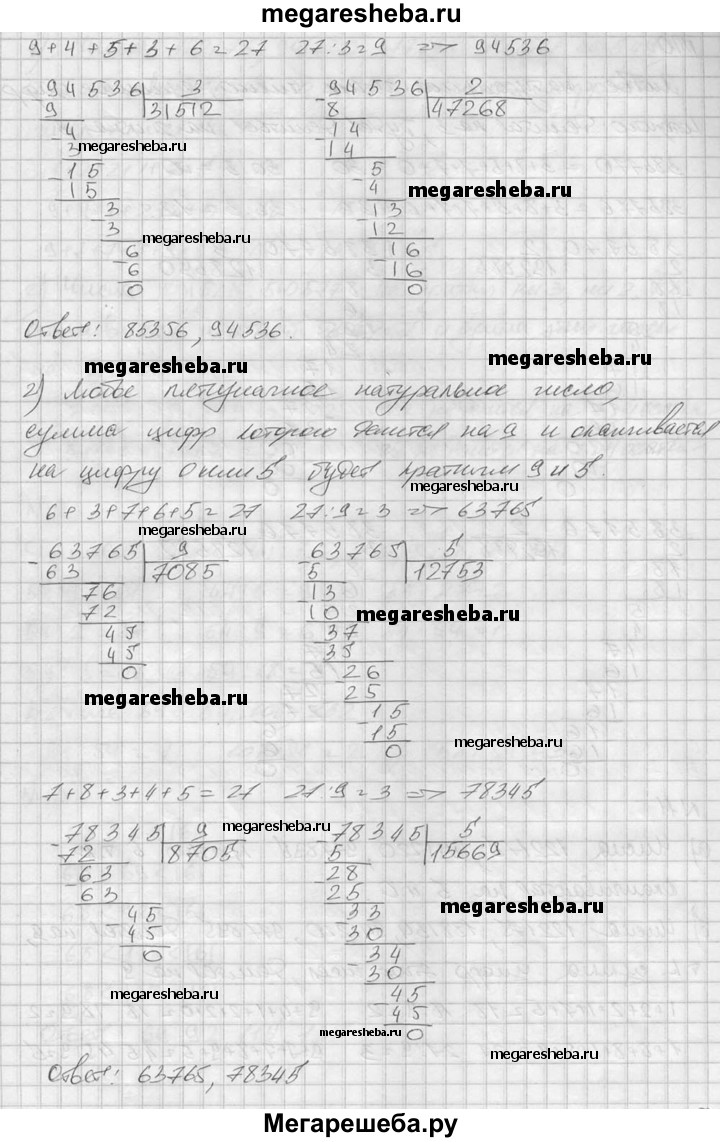 megaresheba.ru
9+4+5+3+6=27 27:3=9 => 94536
94536 3 94536 2
9 31512 8 47268
4 14
3 megaresheba.ru 14
15 5
15 4 megaresheba.ru
3 13
3 12
6 megaresheba.ru 16
6 16
0 0
Ответ: 85356, 94536.
megaresheba.ru megaresheba.ru
2) Любое пятизначное натуральное число,
сумма цифр которого делится на 9 и оканчивается
на цифру 0 или 5 будет кратным 9 и 5.
megaresheba.ru
6+3+7+6+5=27 27:9=3 => 63765
megaresheba.ru
63765 9 63765 5
63 7085 5 12753
76 13
72 10 megaresheba.ru
45 37
45 35
0 26
megaresheba.ru 25
15
15 megaresheba.ru
0
7+8+3+4+5=27 27:9=3 => 78345
78345 9 megaresheba.ru 78345 5
72 8705 5 15669
63 28
63 25
45 33 megaresheba.ru
45 30
0 34
30
megaresheba.ru 45
45
megaresheba.ru 0
megaresheba.ru
Ответ: 63765, 78345
Мегарешеба.ру